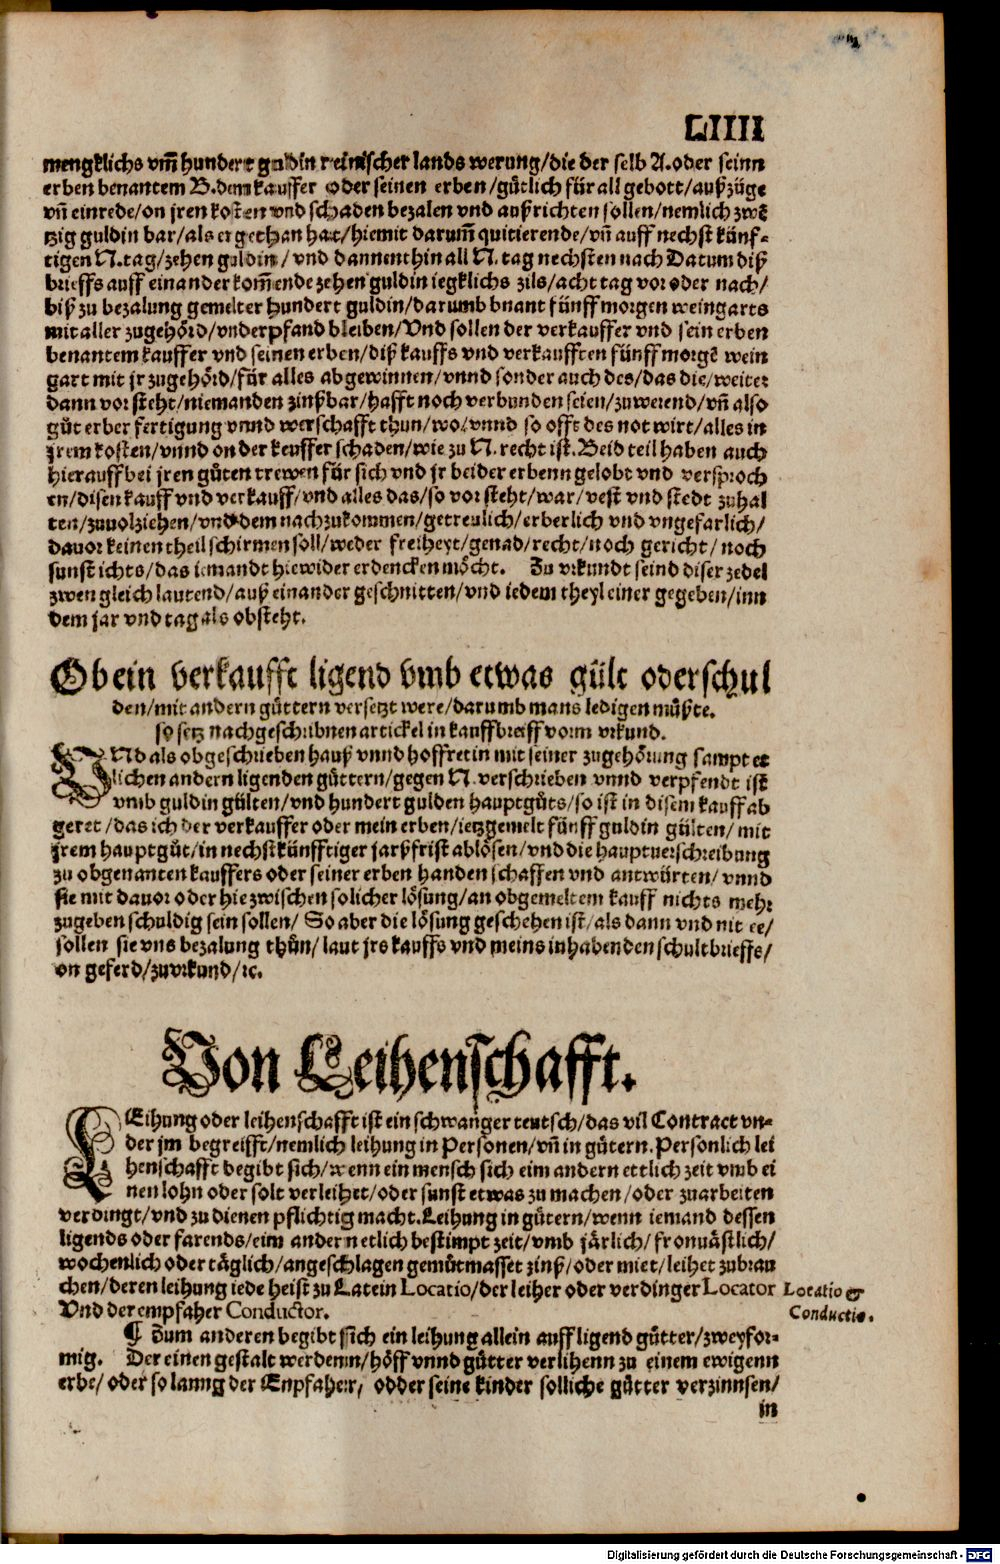 LIIII
mengklichs vm̃ hundert guldin reinischer lands werung/die der selb A.oder seinn
erben benantem B.dem kauffer oder seinen erben/gütlich für all gebott/außzüge
vñ einrede/on jren kosten vnd schaden bezalen vnd außrichten sollen/nemlich zwē
tzig guldin bar/als er gethan hat/hiemit darum̃ quitierende/vñ auff nechst künf-
tigen N.tag/zehen guldin/ vnd dannenthin all N. tag nechsten nach Datum diß
brieffs auff einander kom̃ende zehen guldin iegklichs zils/acht tag vor oder nach/
biß zu bezalung gemelter hundert guldin/darumb bnant fünff morgen weingarts
mit aller zugehörd/vnderpfand bleiben/Vnd sollen der verkauffer vnd sein erben
benantem kauffer vnd seinen erben/diß kauffs vnd verkaufften fünff morgē wein
gart mit jr zugehörd/für alles abgewinnen/vnnd sonder auch des/das die/weiter
dann vor steht/niemanden zinßbar/hafft noch verbunden seien/zuwerend/vñ also
gůt erber fertigung vnnd werschafft thun/wo/vnnd so offt des not wirt/alles in
jrem kosten/vnnd on der keuffer schaden/wie zu N.recht ist.Beid teil haben auch
hierauff bei jren gůten trewen für sich vnd jr beider erbenn gelobt vnd versproch
en/disen kauff vnd verkauff/vnd alles das/so vor steht/war/vest vnd stedt zuhal
ten/zuuolziehen/vnd dem nachzukommen/getreulich/erberlich vnd vngefarlich/
dauor keinen theil schirmen soll/weder freiheyt/genad/recht/noch gericht/noch
sunst ichts/das iemandt hiewider erdencken möcht. Zu vrkundt seind diser zedel
zwen gleich lautend/auß einander geschnitten/vnd iedem theyl einer gegeben/inn
dem jar vnd tag als obsteht.
Ob ein verkaufft ligend vmb etwas gült oder schul
den/mit andern güttern versetzt were/darumb mans ledigen müßte.
so setz nachgeschribnen artickel in kauffbrieff vorm vrkund.
VNd als obgeschrieben hauß vnnd hoffretin mit seiner zugehörung sampt et
lichen andern ligenden güttern/gegen N.verschrieben vnnd verpfendt ist
vmb guldin gülten/vnd hundert gulden hauptgůts/so ist in disem kauff ab
geret/das ich der verkauffer oder mein erben/ietzgemelt fünff guldin gülten/ mit
jrem hauptgůt/in nechstkünfftiger jarßfrist ablösen/vnd die hauptuerschreibung
zu obgenanten kauffers oder seiner erben handen schaffen vnd antwürten/ vnnd
sie mit dauor oder hie zwischen solicher lösung/an obgemeltem kauff nichts mehr
zugeben schuldig sein sollen/ So aber die lösung geschehen ist/als dann vnd nit ee/
sollen sie vns bezalung thůn/ laut jrs kauffs vnd meins inhabenden schultbrieffs/
on geferd/zuvrkund/ꝛc.
Von Leihenschafft.
LEihung oder leihenschafft ist ein schwanger teutsch/das vil Contract vn-
der jm begreifft/nemlich leihung in Personen/vñ in gütern.Persönlich lei
henschafft begibt sich/wenn ein mensch sich eim andern ettlich zeit vmb ei
nen lohn oder solt verleihet/oder sunst etwas zu machen/oder zuarbeiten
verdingt/vnd zu dienen pflichtig macht.Leihung in gütern/wenn iemand dessen
ligends oder farends/eim andern etlich bestimpt zeit/vmb järlich/fronuästlich/
wochenlich oder täglich/angeschlagen gemütmasset zinß/oder miet/leihet zubrau
chen/deren leihung iede heist zu Latein Locatio/der leiher oder verdinger Locator
Vnd der empfaher Conductor.
Locatio &
Conductio.
¶ Zum anderen begibt sich ein leihung allein auff ligend gütter/zweyfor-
mig. Der einen gestalt werdenn/höff vnnd gütter verlihenn zu einem ewigenn
erbe/ oder so lanng der Enpfaher, odder seine kinder solliche gütter verzinnsen/
in
Digitalisierung gefördert durch die Deutsche Forschungsgemeinschaft - DFG